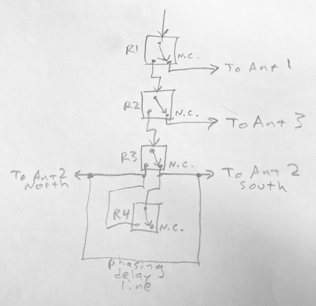 R1
N.C.
To Ant 1
R2
N.C.
To Ant 3
R3
N.C.
To Ant 2
North
To Ant 2
South
R4
N.C.
phasing
delay
line